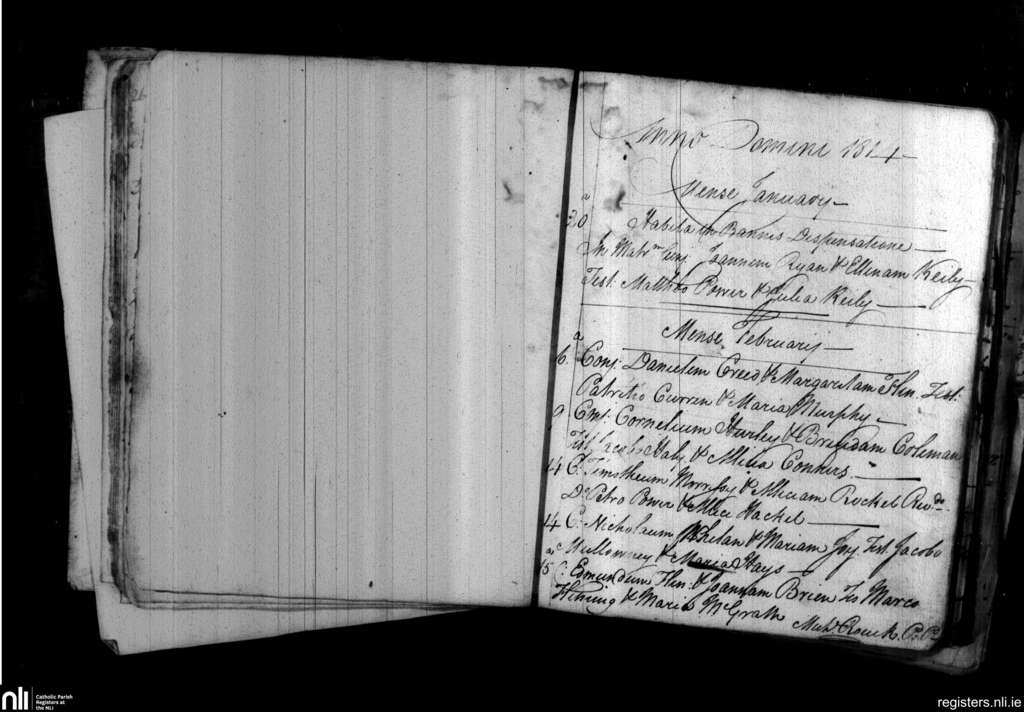 Anno Domini 1814
Mense January
a
20 Habita in Bannis Dispensatione
In Matrm Conj. Joannem Ryan & Ellenam Keily
Test: Mattheo Power & Julia Keily
Mense February
a
6. Conj: Danielem Creed & Margaritam Flin. Test:
Patritio Curren & Maria Murphy
9 Conj: Cornelium Hurley & Brigidam Coleman
Test Jacobo Haly & Alicia Conners
14 C: Timotheum & Aliciam
Do Petro Power & Alice Hackel
14 C: Nicholaum Whelan & Mariam Joy Test. Jacobo
Mullowney & Maria Hays
a
15 C: Edmundum Flin: & Joannam Brien Tes Marco
& Maria McGrath
P.P.
nli
Catholic Parish
Registers at
the NLI
registers.nli.ie